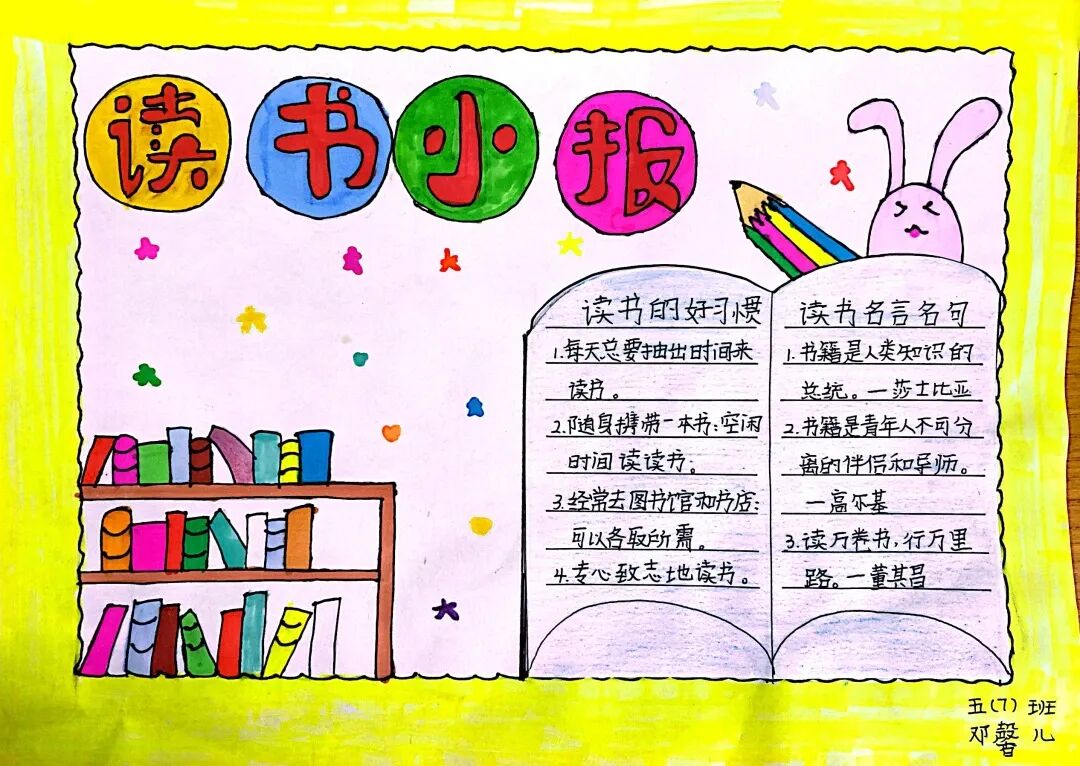 读书小报
读书的好习惯
1.每天总要抽出时间来
读书。
2.随身携带一本书;空闲
时间读读书。
3.经常去图书馆和书店;
可以各取所需。
4.专心致志地读书。
读书名言名句
1.书籍是人类知识的
总统。—莎士比亚
2.书籍是青年人不可分
离的伴侣和导师。
—高尔基
3.读万卷书,行万里
路。—董其昌
五(7)班
邓馨儿